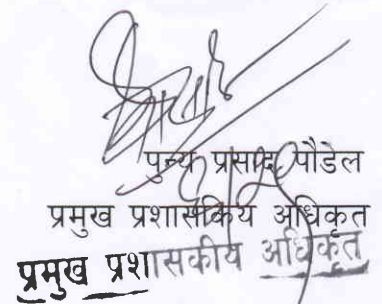 पुन्य प्रसाद पौडेल
प्रमुख प्रशासकिय अधिकृत
प्रमुख प्रशासकीय अधिकृत